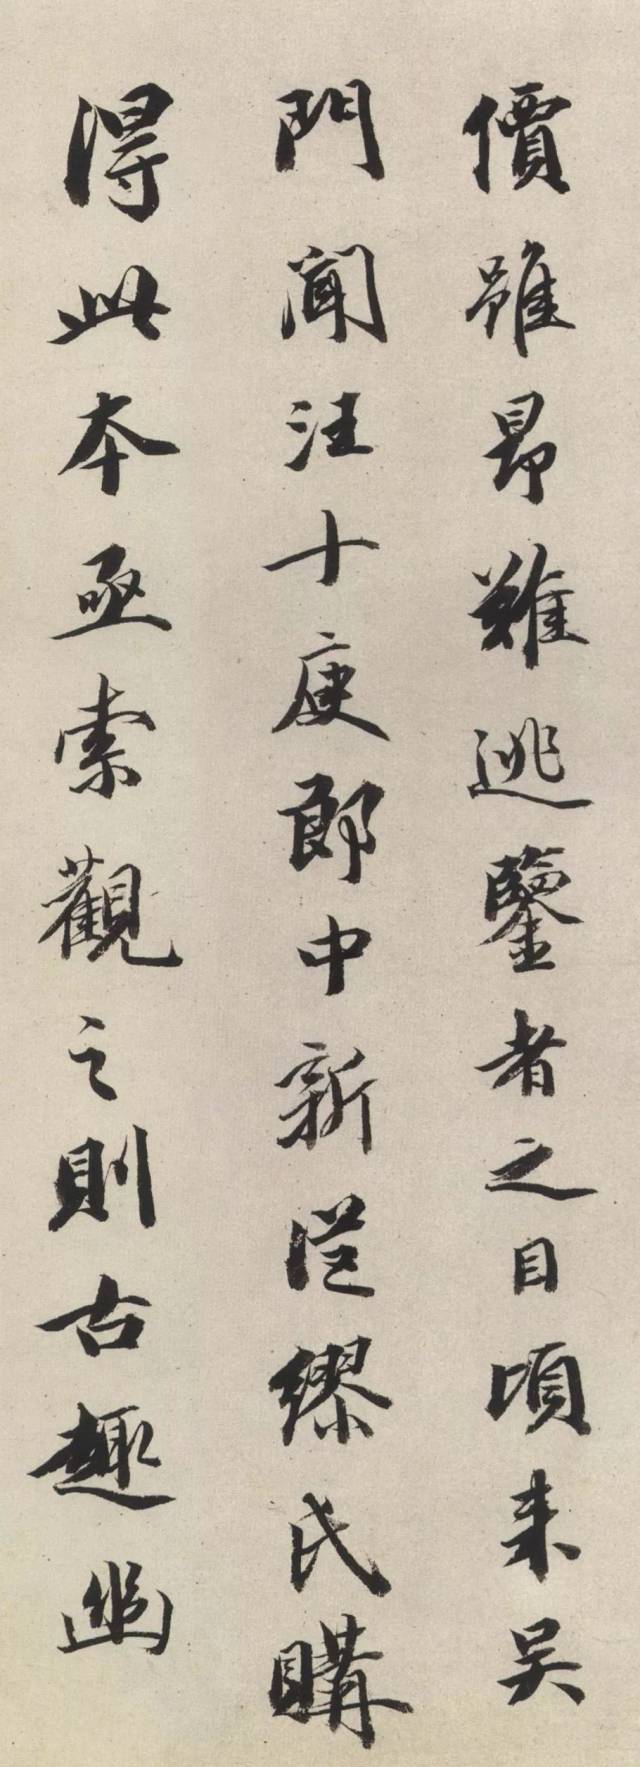 價雖昂難逃鑒者之目頃来吴
門聞汪十庚郎中新従繆氏購
得此本亟索觀之則古趣幽